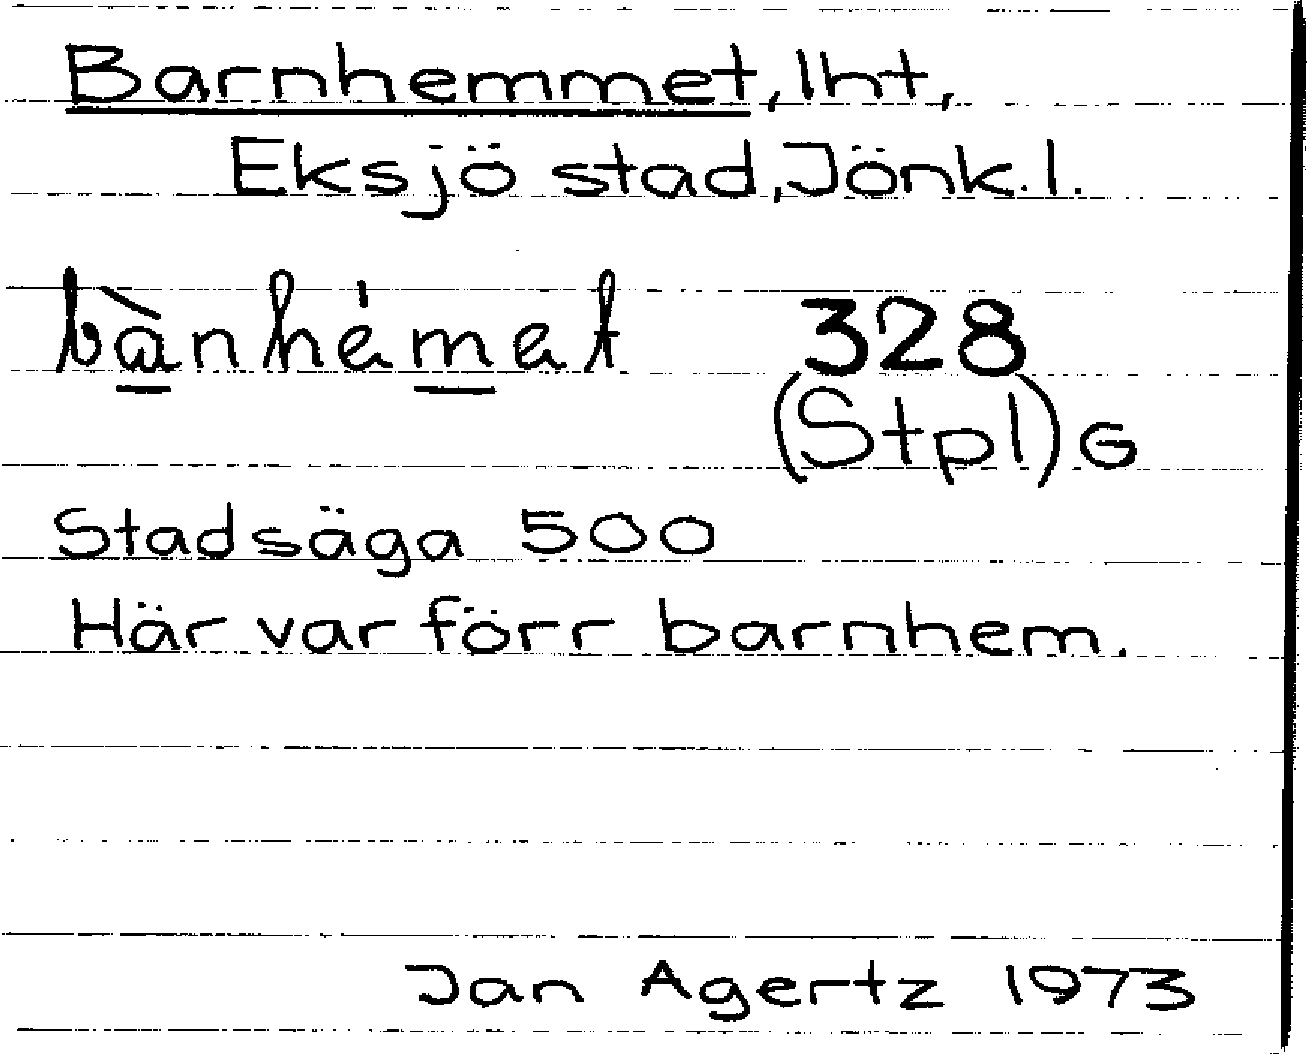 Barnhemmet, lht,
Eksjö stad, Jönk. l.
bànhémat 328
(Stpl) G
Stadsäga 500
Här var förr barnhem.
Jan Agertz 1973